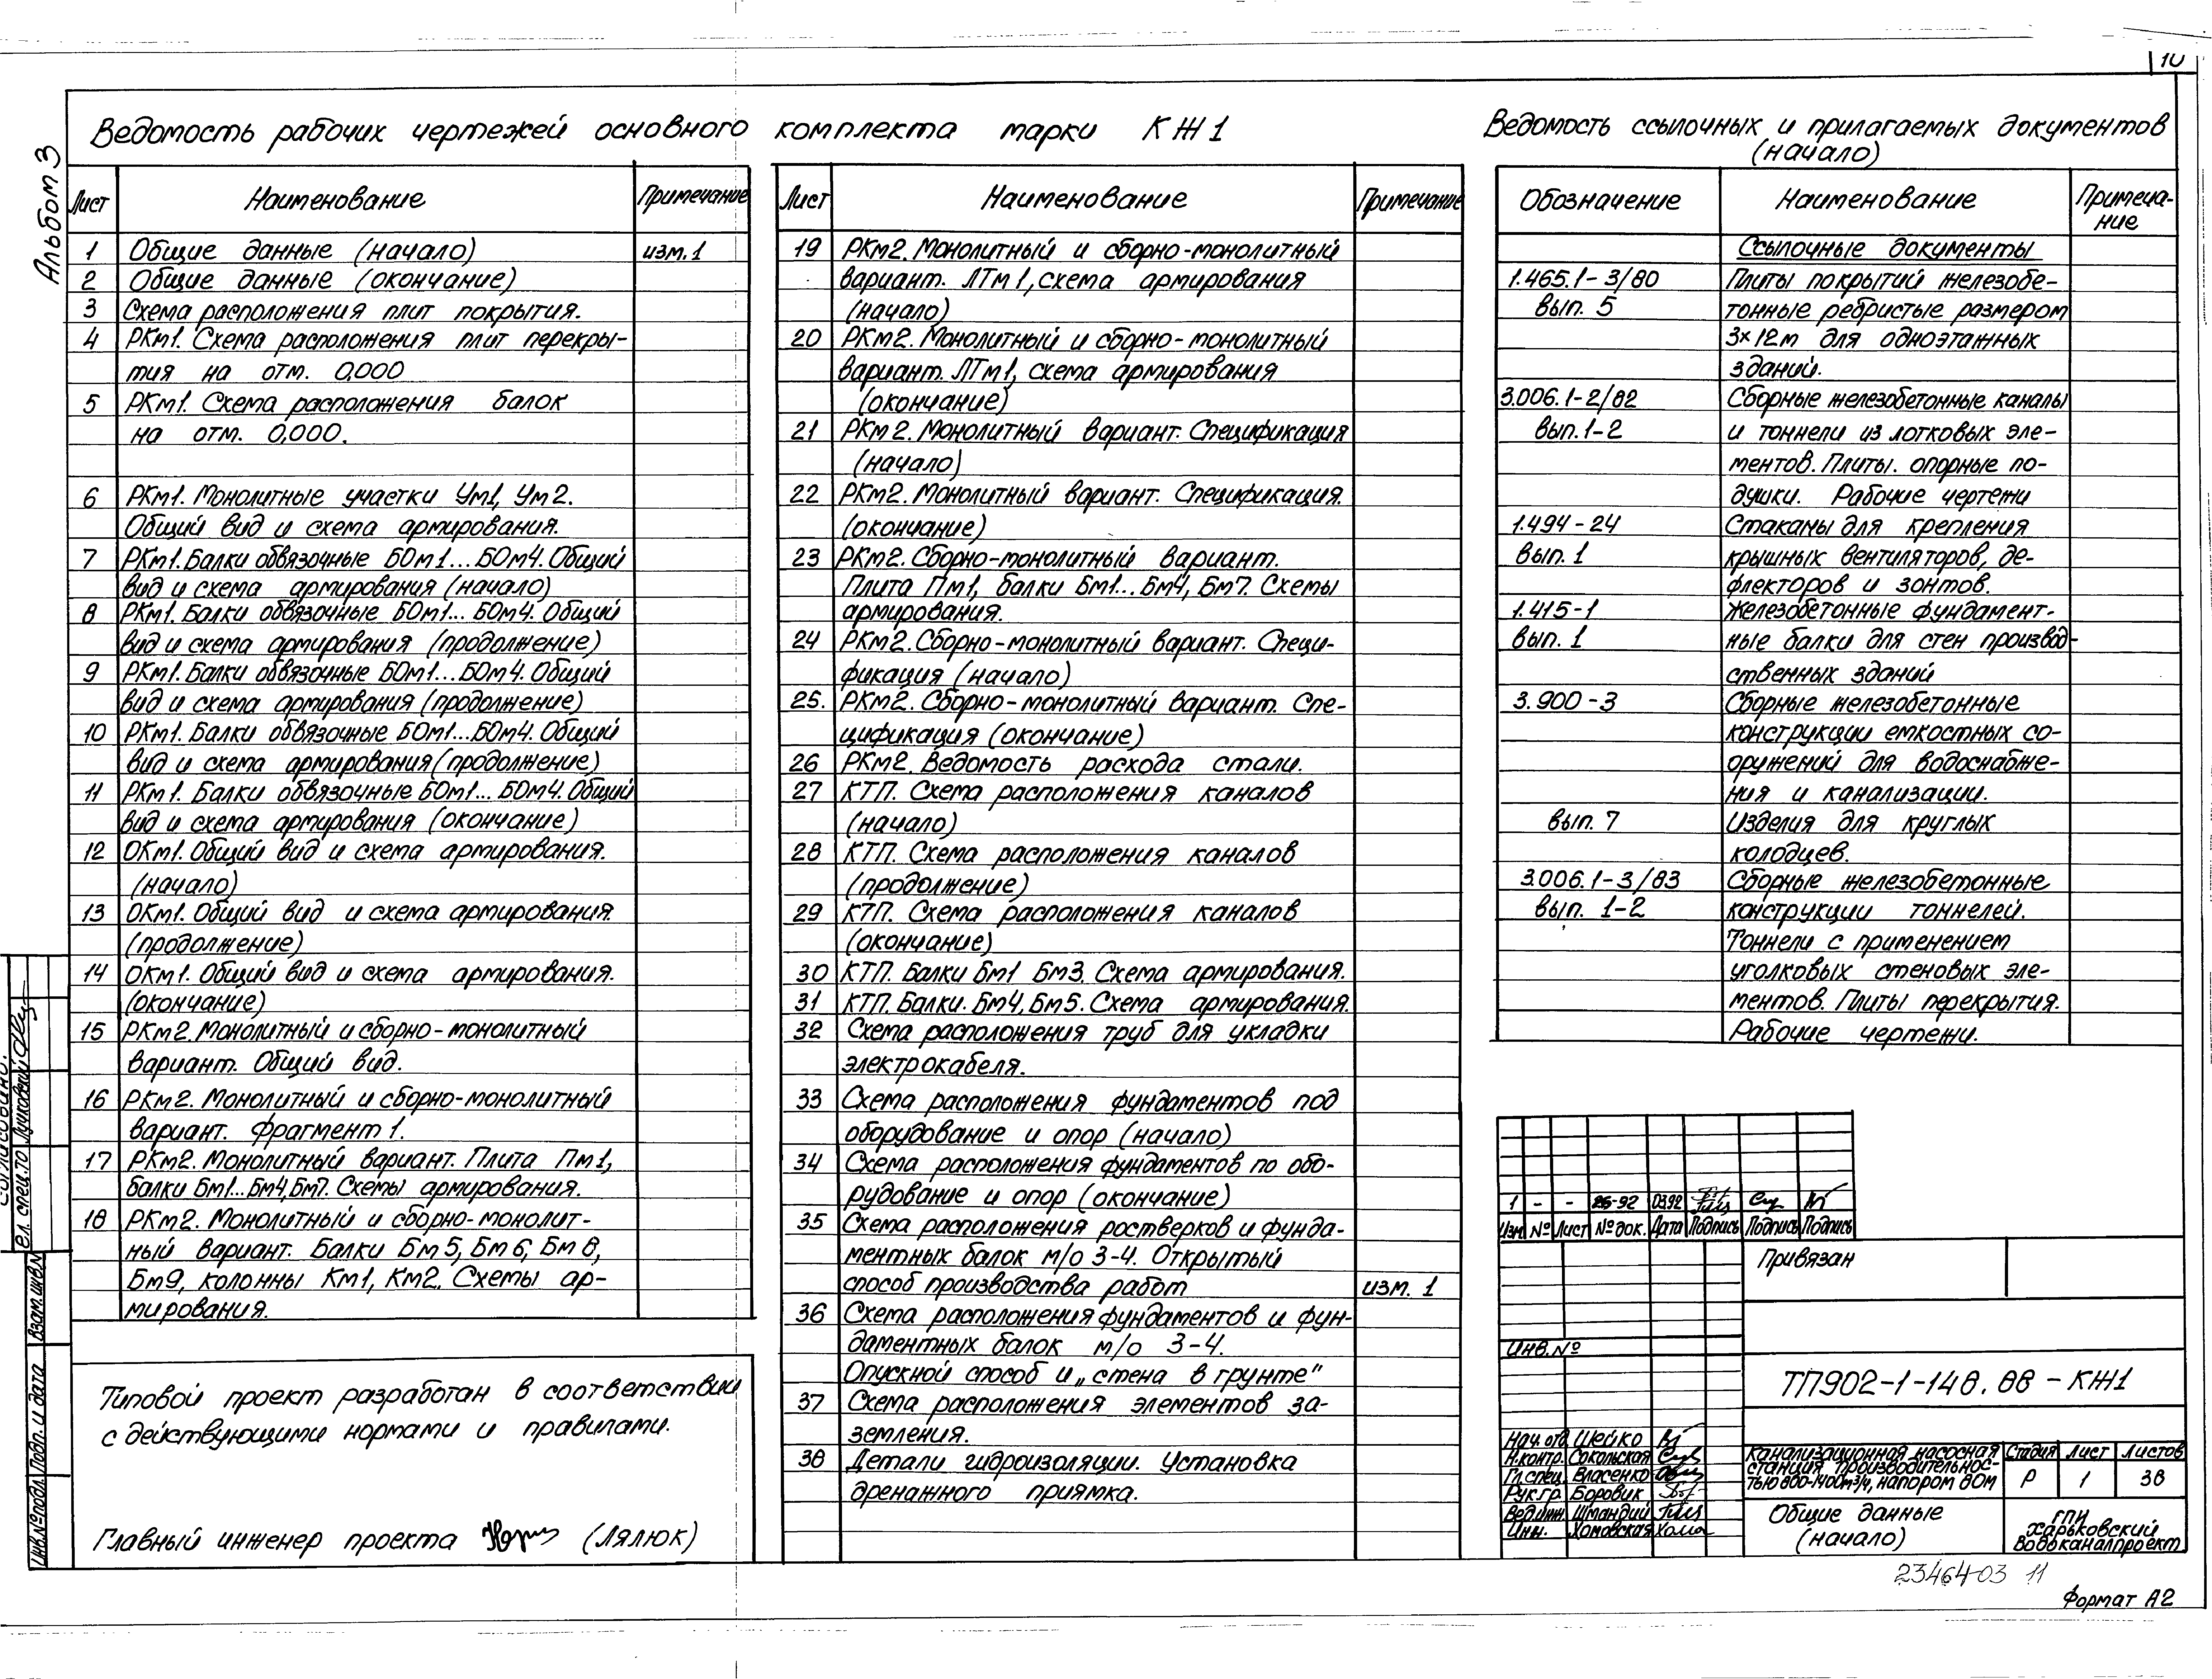 10
Альбом 3
Ведомость рабочих чертежей основного комплекта марки КЖ1
Лист Наименование Примечание
1 Общие данные (начало) изм. 1
2 Общие данные (окончание)
3 Схема расположения плит покрытия.
4 РКм1. Схема расположения плит перекры-
тия на отм. 0,000
5 РКм1. Схема расположения балок
на отм. 0,000.
6 РКм1. Монолитные участки Ум1, Ум2.
Общий вид и схема армирования.
7 РКм1. Балки обвязочные БОм1...БОм4. Общий
вид и схема армирования (начало)
8 РКм1. Балки обвязочные БОм1... БОм4. Общий
вид и схема армирования (продолжение)
9 РКм1. Балки обвязочные БОм1...БОм4. Общий
вид и схема армирования (продолжение)
10 РКм1. Балки обвязочные БОм1...БОм4. Общий
вид и схема армирования (продолжение)
11 РКм1. Балки обвязочные БОм1... БОм4. Общий
вид и схема армирования (окончание)
12 ОКм1. Общий вид и схема армирования.
(начало)
13 ОКм1. Общий вид и схема армирования.
(продолжение)
14 ОКм1. Общий вид и схема армирования.
(окончание)
15 РКм2. Монолитный и сборно-монолитный
вариант. Общий вид.
16 РКм2. Монолитный и сборно-монолитный
вариант. Фрагмент 1.
17 РКм2. Монолитный вариант. Плита Пм1,
балки Бм1...Бм4, Бм7. Схемы армирования.
18 РКм2. Монолитный и сборно-монолит-
ный вариант. Балки Бм5, Бм6, Бм8,
Бм9, колонны Км1, Км2. Схемы ар-
мирования.
Лист Наименование Примечание
19 РКм2. Монолитный и сборно-монолитный
вариант. ЛТм1, схема армирования
(начало)
20 РКм2. Монолитный и сборно-монолитный
вариант. ЛТм1, схема армирования
(окончание)
21 РКм2. Монолитный вариант. Спецификация
(начало)
22 РКм2. Монолитный вариант. Спецификация.
(окончание)
23 РКм2. Сборно-монолитный вариант.
Плита Пм1, балки Бм1...Бм4, Бм7. Схемы
армирования.
24 РКм2. Сборно-монолитный вариант. Специ-
фикация (начало)
25. РКм2. Сборно-монолитный вариант. Спе-
цификация (окончание)
26 РКм2. Ведомость расхода стали.
27 КТП. Схема расположения каналов
(начало)
28 КТП. Схема расположения каналов
(продолжение)
29 КТП. Схема расположения каналов
(окончание)
30 КТП. Балки Бм1 Бм3. Схема армирования.
31 КТП. Балки. Бм4, Бм5. Схема армирования.
32 Схема расположения труб для укладки
электрокабеля.
33 Схема расположения фундаментов под
оборудование и опор (начало)
34 Схема расположения фундаментов по обо-
рудование и опор (окончание)
35 Схема расположения ростверков и фунда-
ментных балок м/о 3-4. Открытый
способ производства работ изм. 1
36 Схема расположения фундаментов и фун-
даментных балок м/о 3-4.
Опускной способ и „стена в грунте"
37 Схема расположения элементов за-
земления.
38 Детали гидроизоляции. Установка
дренажного приямка.
Ведомость ссылочных и прилагаемых документов
(начало)
Обозначение Наименование Примеча-
ние
Ссылочные документы
1.465.1-3/80 Плиты покрытий железобе-
вып. 5 тонные ребристые размером
3×12м для одноэтажных
зданий.
3.006.1-2/82 Сборные железобетонные каналы
вып. 1-2 и тоннели из лотковых эле-
ментов. Плиты. опорные по-
душки. Рабочие чертежи
1.494-24 Стаканы для крепления
вып. 1 крышных вентиляторов, де-
флекторов и зонтов.
1.415-1 Железобетонные фундамент-
вып. 1 ные балки для стен производ-
ственных зданий
3.900-3 Сборные железобетонные
конструкции емкостных со-
оружений для водоснабже-
ния и канализации.
вып. 7 Изделия для круглых
колодцев.
3.006.1-3/83 Сборные железобетонные
вып. 1-2 конструкции тоннелей.
Тоннели с применением
уголковых стеновых эле-
ментов. Плиты перекрытия.
Рабочие чертежи.
Типовой проект разработан в соответствии
с действующими нормами и правилами.
Главный инженер проекта (Лялюк)
Согласовано:
Гл. спец. ТО Луковский
Взам. инв. №
Подп. и дата
Инв. № подл.
1 - - 26-92 03.92
Изм № Лист № док. Дата Подпись Подпись Подпись
Привязан
Инв. №
ТП902-1-148.88-КЖ1
Нач. отд Шейко
Н. контр. Сокольская
Гл. спец. Власенко
Рук. гр. Боровик
Вед. инж. Шмандий
Инж. Хомовская
Канализационная насосная
станция производительнос-
тью 800-1400м³/ч, напором 80м
Стадия Лист Листов
Р 1 38
Общие данные
(начало)
ГПИ
Харьковский
Водоканалпроект
23464-03 11
Формат А2